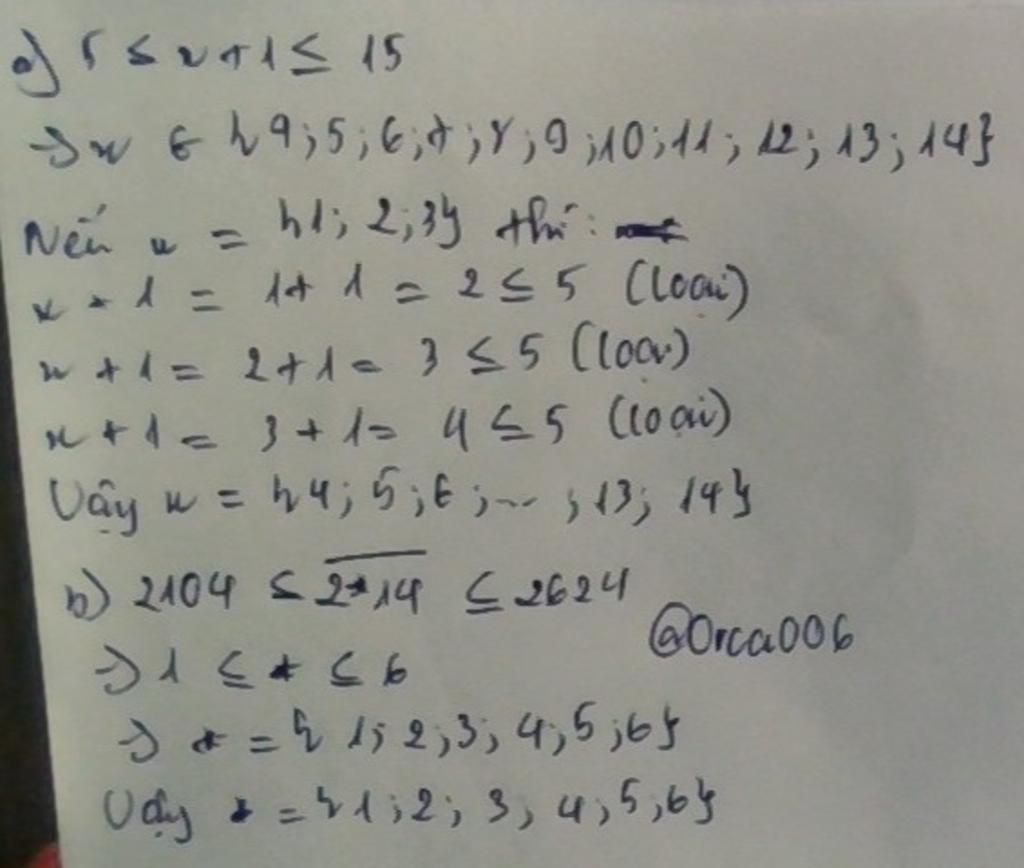 a) 5 ≤ x + 1 ≤ 15
→ x ∈ {4; 5; 6; 7; 8; 9; 10; 11; 12; 13; 14}
Nếu x = {1; 2; 3} thì:
x + 1 = 1 + 1 = 2 ≤ 5 (loại)
x + 1 = 2 + 1 = 3 ≤ 5 (loại)
x + 1 = 3 + 1 = 4 ≤ 5 (loại)
Vậy x = {4; 5; 6; ... ; 13; 14}
b) 2104 ≤ \overline{2*14} ≤ 2624
@Orca006
→ 1 ≤ * ≤ 6
→ * = {1; 2; 3; 4; 5; 6}
Vậy * = {1; 2; 3; 4; 5; 6}